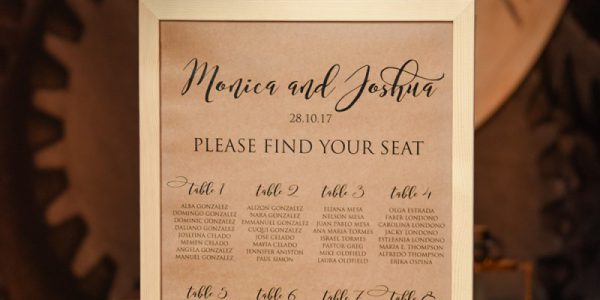 Monica and Joshua
28.10.17
PLEASE FIND YOUR SEAT
table 1
ALBA GONZALEZ
DOMINGO GONZALEZ
DOMINIC GONZALEZ
DALIANO GONZALEZ
JOSEFINA CELADO
MEMEN CELADO
ANGELA GONZALEZ
MANUEL GONZALEZ
table 2
ALIZON GONZALEZ
NARA GONZALEZ
EMMANUEL GONZALEZ
CUQUI GONZALEZ
JOSE CELADO
MAYTA CELADO
JENNIFER ANISTON
PAUL SIMON
table 3
ELIANA MESA
NELSON MESA
JUAN PABLO MESA
ANA MARIA TORMES
ISRAEL TORMES
PASTOR GREG
MIKE OLDFIELD
LAURA OLDFIELD
table 4
OLGA ESTRADA
FABER LONDONO
CAROLINA LONDONO
JACKY LONDONO
ESTEFANIA LONDONO
MARIA E. THOMPSON
ALFREDO THOMPSON
ERIKA OSPINA
table 5
table 6
table 7
table 8